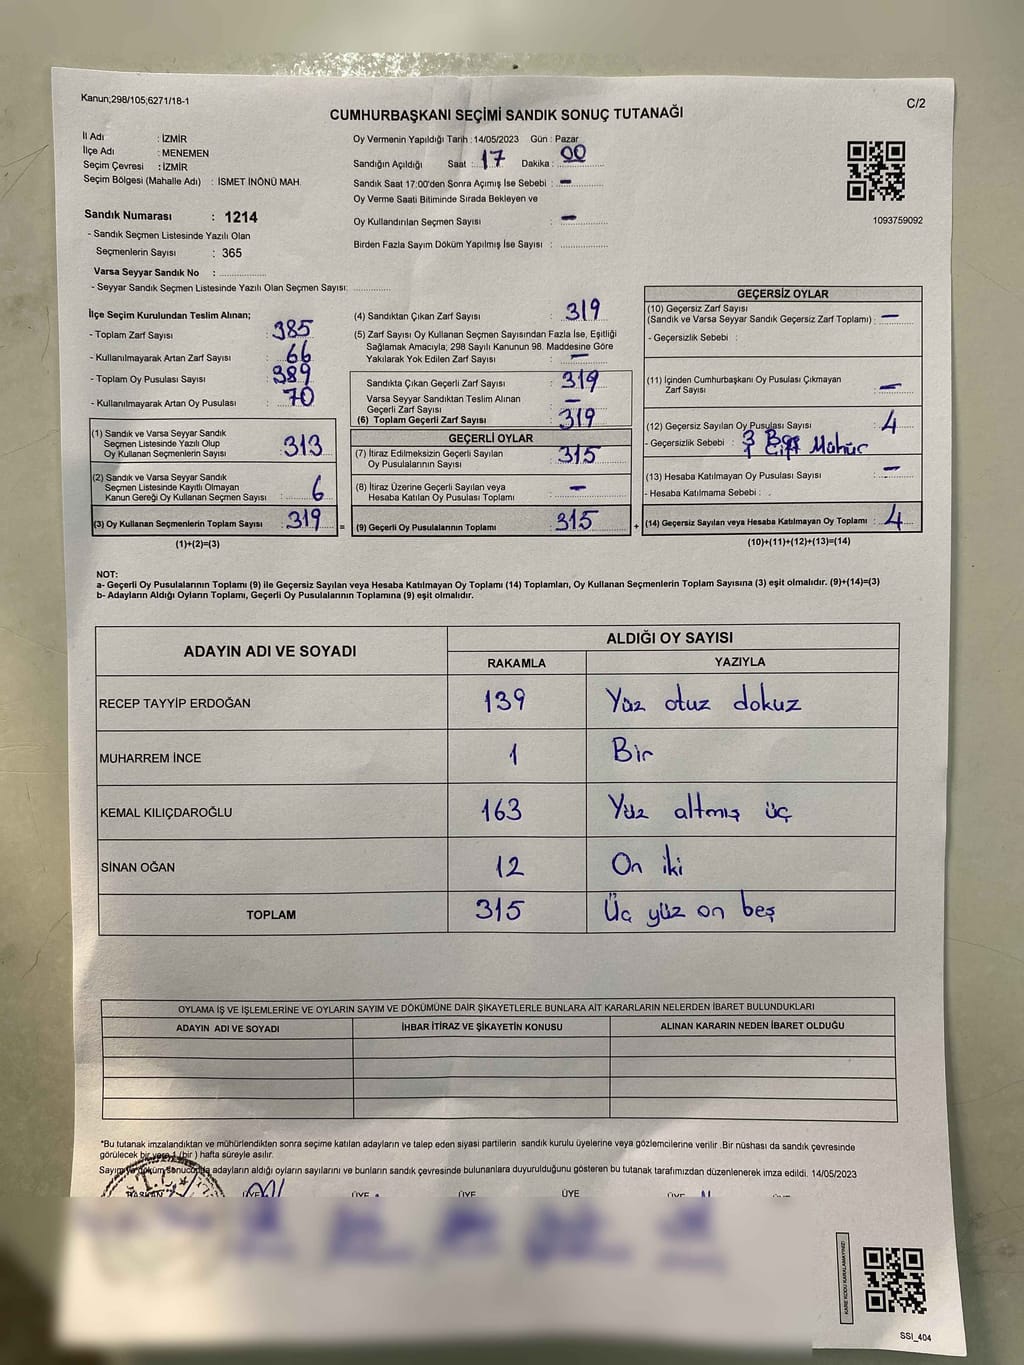 Kanun;298/105;6271/18-1
C/2
CUMHURBAŞKANI SEÇİMİ SANDIK SONUÇ TUTANAĞI
İl Adı : İZMİR
İlçe Adı : MENEMEN
Seçim Çevresi : İZMİR
Seçim Bölgesi (Mahalle Adı) : İSMET İNÖNÜ MAH.
Sandık Numarası : 1214
- Sandık Seçmen Listesinde Yazılı Olan
Seçmenlerin Sayısı : 365
Varsa Seyyar Sandık No :
- Seyyar Sandık Seçmen Listesinde Yazılı Olan Seçmen Sayısı:
Oy Vermenin Yapıldığı Tarih : 14/05/2023 Gün : Pazar
Sandığın Açıldığı Saat : 17 Dakika : 00
Sandık Saat 17:00'den Sonra Açımış İse Sebebi : -
Oy Verme Saati Bitiminde Sırada Bekleyen ve
Oy Kullandırılan Seçmen Sayısı : -
Birden Fazla Sayım Döküm Yapılmış İse Sayısı :
1093759092
İlçe Seçim Kurulundan Teslim Alınan;
- Toplam Zarf Sayısı : 385
- Kullanılmayarak Artan Zarf Sayısı : 66
- Toplam Oy Pusulası Sayısı : 389
- Kullanılmayarak Artan Oy Pusulası : 70
(1) Sandık ve Varsa Seyyar Sandık
Seçmen Listesinde Yazılı Olup
Oy Kullanan Seçmenlerin Sayısı : 313
(2) Sandık ve Varsa Seyyar Sandık
Seçmen Listesinde Kayıtlı Olmayan
Kanun Gereği Oy Kullanan Seçmen Sayısı : 6
(3) Oy Kullanan Seçmenlerin Toplam Sayısı : 319 =
(1)+(2)=(3)
(4) Sandıktan Çıkan Zarf Sayısı : 319
(5) Zarf Sayısı Oy Kullanan Seçmen Sayısından Fazla İse, Eşitliği
Sağlamak Amacıyla; 298 Sayılı Kanunun 98. Maddesine Göre
Yakılarak Yok Edilen Zarf Sayısı : -
Sandıkta Çıkan Geçerli Zarf Sayısı : 319
Varsa Seyyar Sandıktan Teslim Alınan
Geçerli Zarf Sayısı : -
(6) Toplam Geçerli Zarf Sayısı : 319
GEÇERLİ OYLAR
(7) İtiraz Edilmeksizin Geçerli Sayılan
Oy Pusulalarının Sayısı : 315
(8) İtiraz Üzerine Geçerli Sayılan veya
Hesaba Katılan Oy Pusulası Toplamı : -
(9) Geçerli Oy Pusulalarının Toplamı : 315 +
GEÇERSİZ OYLAR
(10) Geçersiz Zarf Sayısı
(Sandık ve Varsa Seyyar Sandık Geçersiz Zarf Toplamı) : -
- Geçersizlik Sebebi :
(11) İçinden Cumhurbaşkanı Oy Pusulası Çıkmayan
Zarf Sayısı : -
(12) Geçersiz Sayılan Oy Pusulası Sayısı : 4
- Geçersizlik Sebebi : 3 Boş
1 Çift Mühür
(13) Hesaba Katılmayan Oy Pusulası Sayısı : -
- Hesaba Katılmama Sebebi :
(14) Geçersiz Sayılan veya Hesaba Katılmayan Oy Toplamı : 4
(10)+(11)+(12)+(13)=(14)
NOT:
a- Geçerli Oy Pusulalarının Toplamı (9) ile Geçersiz Sayılan veya Hesaba Katılmayan Oy Toplamı (14) Toplamları, Oy Kullanan Seçmenlerin Toplam Sayısına (3) eşit olmalıdır. (9)+(14)=(3)
b- Adayların Aldığı Oyların Toplamı, Geçerli Oy Pusulalarının Toplamına (9) eşit olmalıdır.
ADAYIN ADI VE SOYADI ALDIĞI OY SAYISI
RAKAMLA YAZIYLA
RECEP TAYYİP ERDOĞAN 139 Yüz otuz dokuz
MUHARREM İNCE 1 Bir
KEMAL KILIÇDAROĞLU 163 Yüz altmış üç
SİNAN OĞAN 12 On iki
TOPLAM 315 Üç yüz on beş
OYLAMA İŞ VE İŞLEMLERİNE VE OYLARIN SAYIM VE DÖKÜMÜNE DAİR ŞİKAYETLERLE BUNLARA AİT KARARLARIN NELERDEN İBARET BULUNDUKLARI
ADAYIN ADI VE SOYADI İHBAR İTİRAZ VE ŞİKAYETİN KONUSU ALINAN KARARIN NEDEN İBARET OLDUĞU
*Bu tutanak imzalandıktan ve mühürlendikten sonra seçime katılan adayların ve talep eden siyasi partilerin sandık kurulu üyelerine veya gözlemcilerine verilir .Bir nüshası da sandık çevresinde
görülecek bir yere 1 (bir ) hafta süreyle asılır.
Sayım ve döküm sonucunda adayların aldığı oyların sayılarını ve bunların sandık çevresinde bulunanlara duyurulduğunu gösteren bu tutanak tarafımızdan düzenlenerek imza edildi. 14/05/2023
T.C.
BAŞKAN ÜYE ÜYE ÜYE ÜYE ÜYE ÜYE
KARE KODU KARALAMAYINIZ!
SSI_404